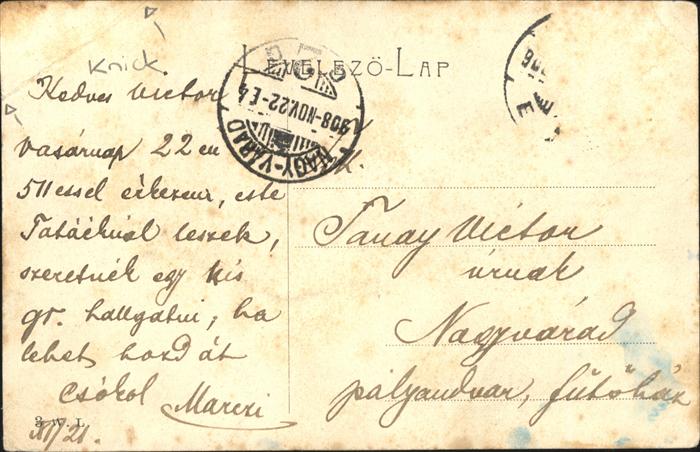 Knick.
LEVELEZŐ-LAP
NAGY-VÁRAD
908-NOV.22-E4
Kedves Victor
vasárnap 22 en
511 essel érkezem, este
Tatáéknál leszek,
szeretnék egy kis
gr. hallgatni, ha
lehet hozd át
Csókol Marczi
XI/21.
3 W. L.
Tanay Victor
úrnak
Nagyvárad
pályaudvar, fűtőház